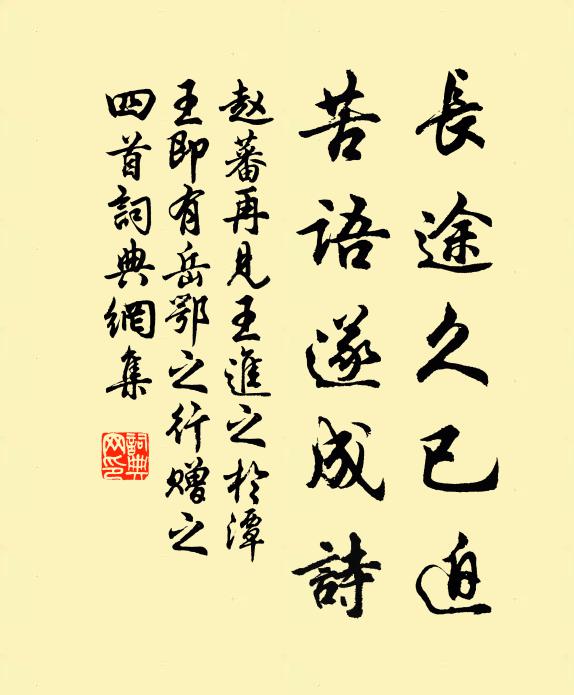 長途久已迫
苦語遂成詩
赵蕃再見王進之於潭
王即有岳鄂之行赠之
四首詞典網集
詞典
网印